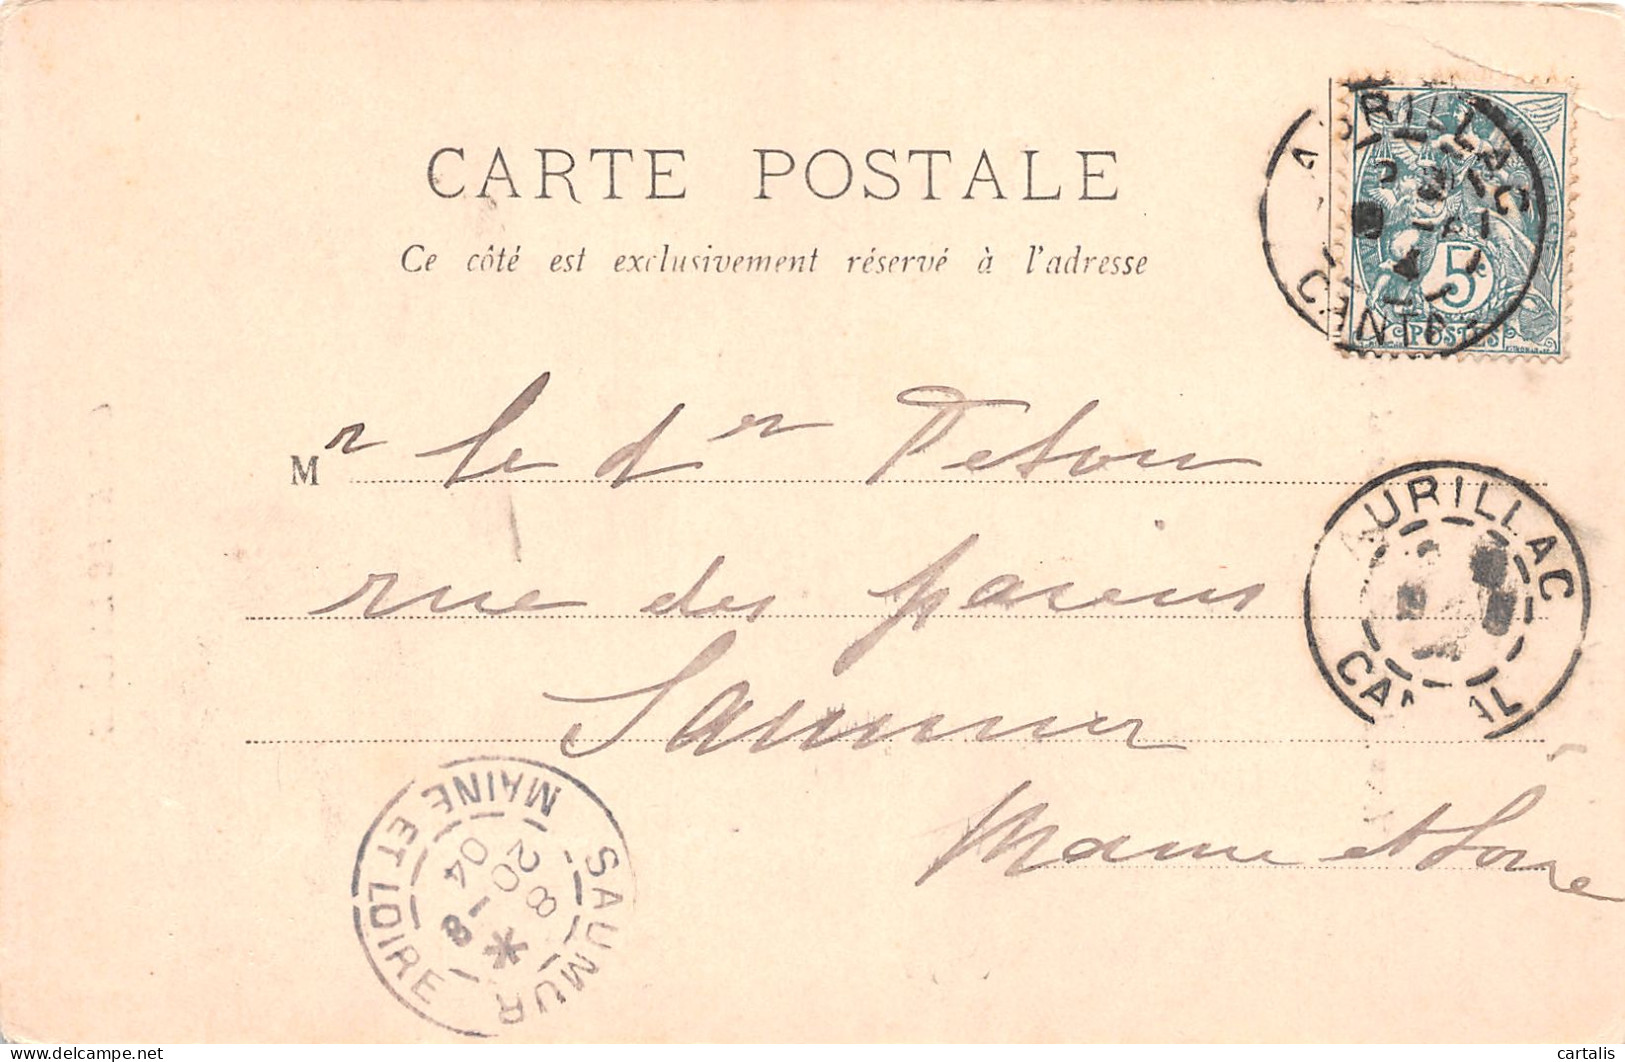 CARTE POSTALE
Ce côté est exclusivement réservé à l'adresse
AURILLAC
CANTAL
5c
POSTES
Mr le dr Peton
rue des païens
Saumur
Maine et Loire
AURILLAC
CANTAL
SAUMUR
MAINE ET LOIRE
8
20 -8
04
cartalis